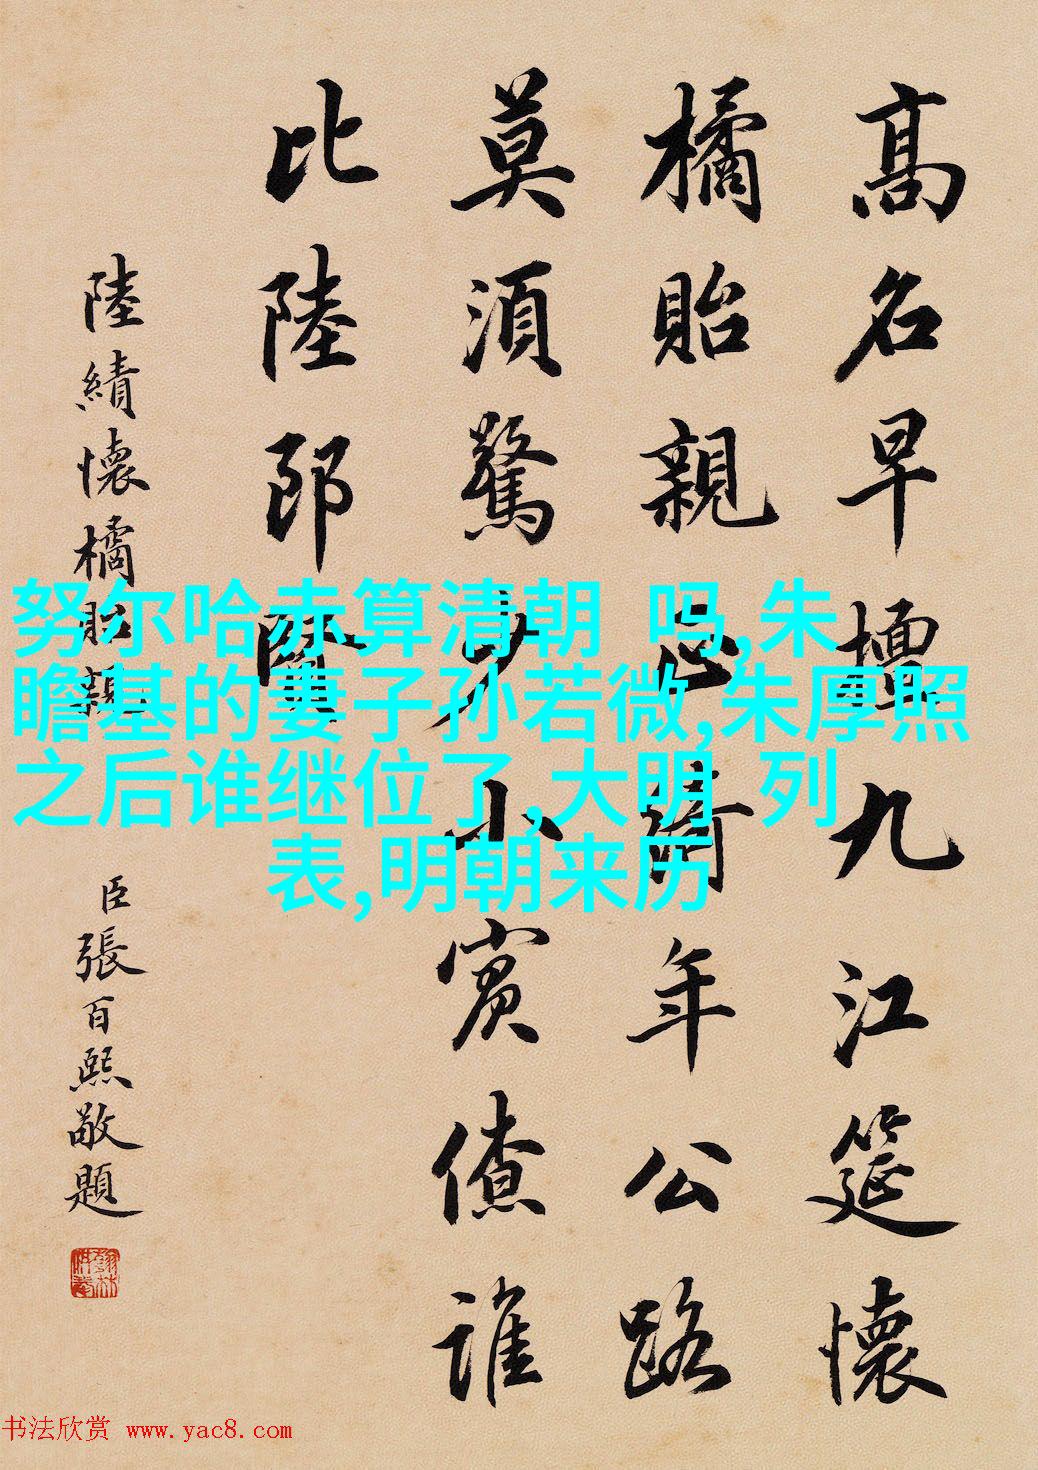 高名早擅九江筵懷
橘貽親正綺年公路
莫須驚少小賓僚誰
比陸郎賢
陸績懷橘貽親
臣張百熙敬題
努尔哈赤算清朝 吗,朱
瞻基的妻子孙若微,朱厚照
之后谁继位了,大明 列
表,明朝来历
书法欣赏 www.yac8.com